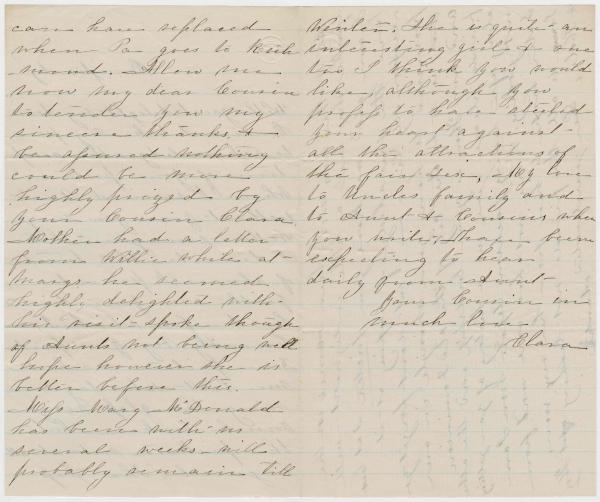 can have replaced
when Pa goes to Rich
-mond. Allow me
now my dear Cousin
to tender you my
sincere thanks, &
be assured nothing
could be more
highly prized by
your Cousin Clara.
Mother had a letter
from Willie while at
Marys he seemed
highly delighted with
his visit - spoke though
of Aunts not being well
hope however she is
better before this.
Miss Mary McDonald
has been with us
several weeks - will
probably remain till
Winter. She is quite an
interesting girl & one
too I think you would
like, although you
profess to have steeled
your heart against
all the attractions of
the fair sex. My love
to Uncles family and
to Aunt & Cousins when
you write. I have been
expecting to hear
daily from Aunt-
Your Cousin in
much love
Clara